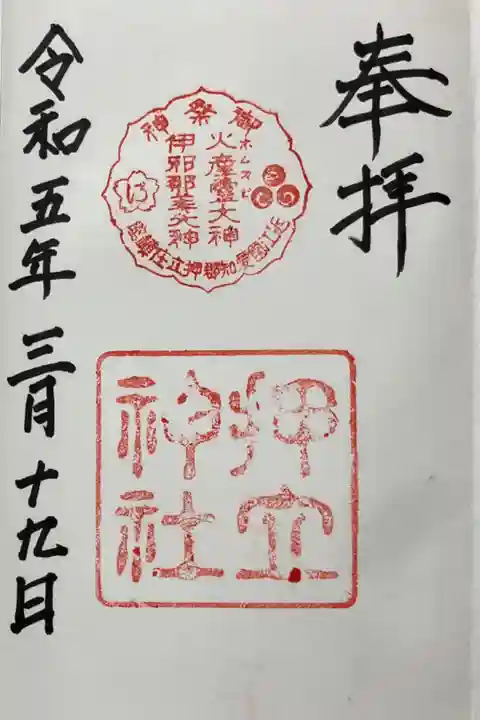 奉拝
御祭神
ホムスビ
火産霊大神
伊邪那美大神
押立神社
令和五年三月十九日